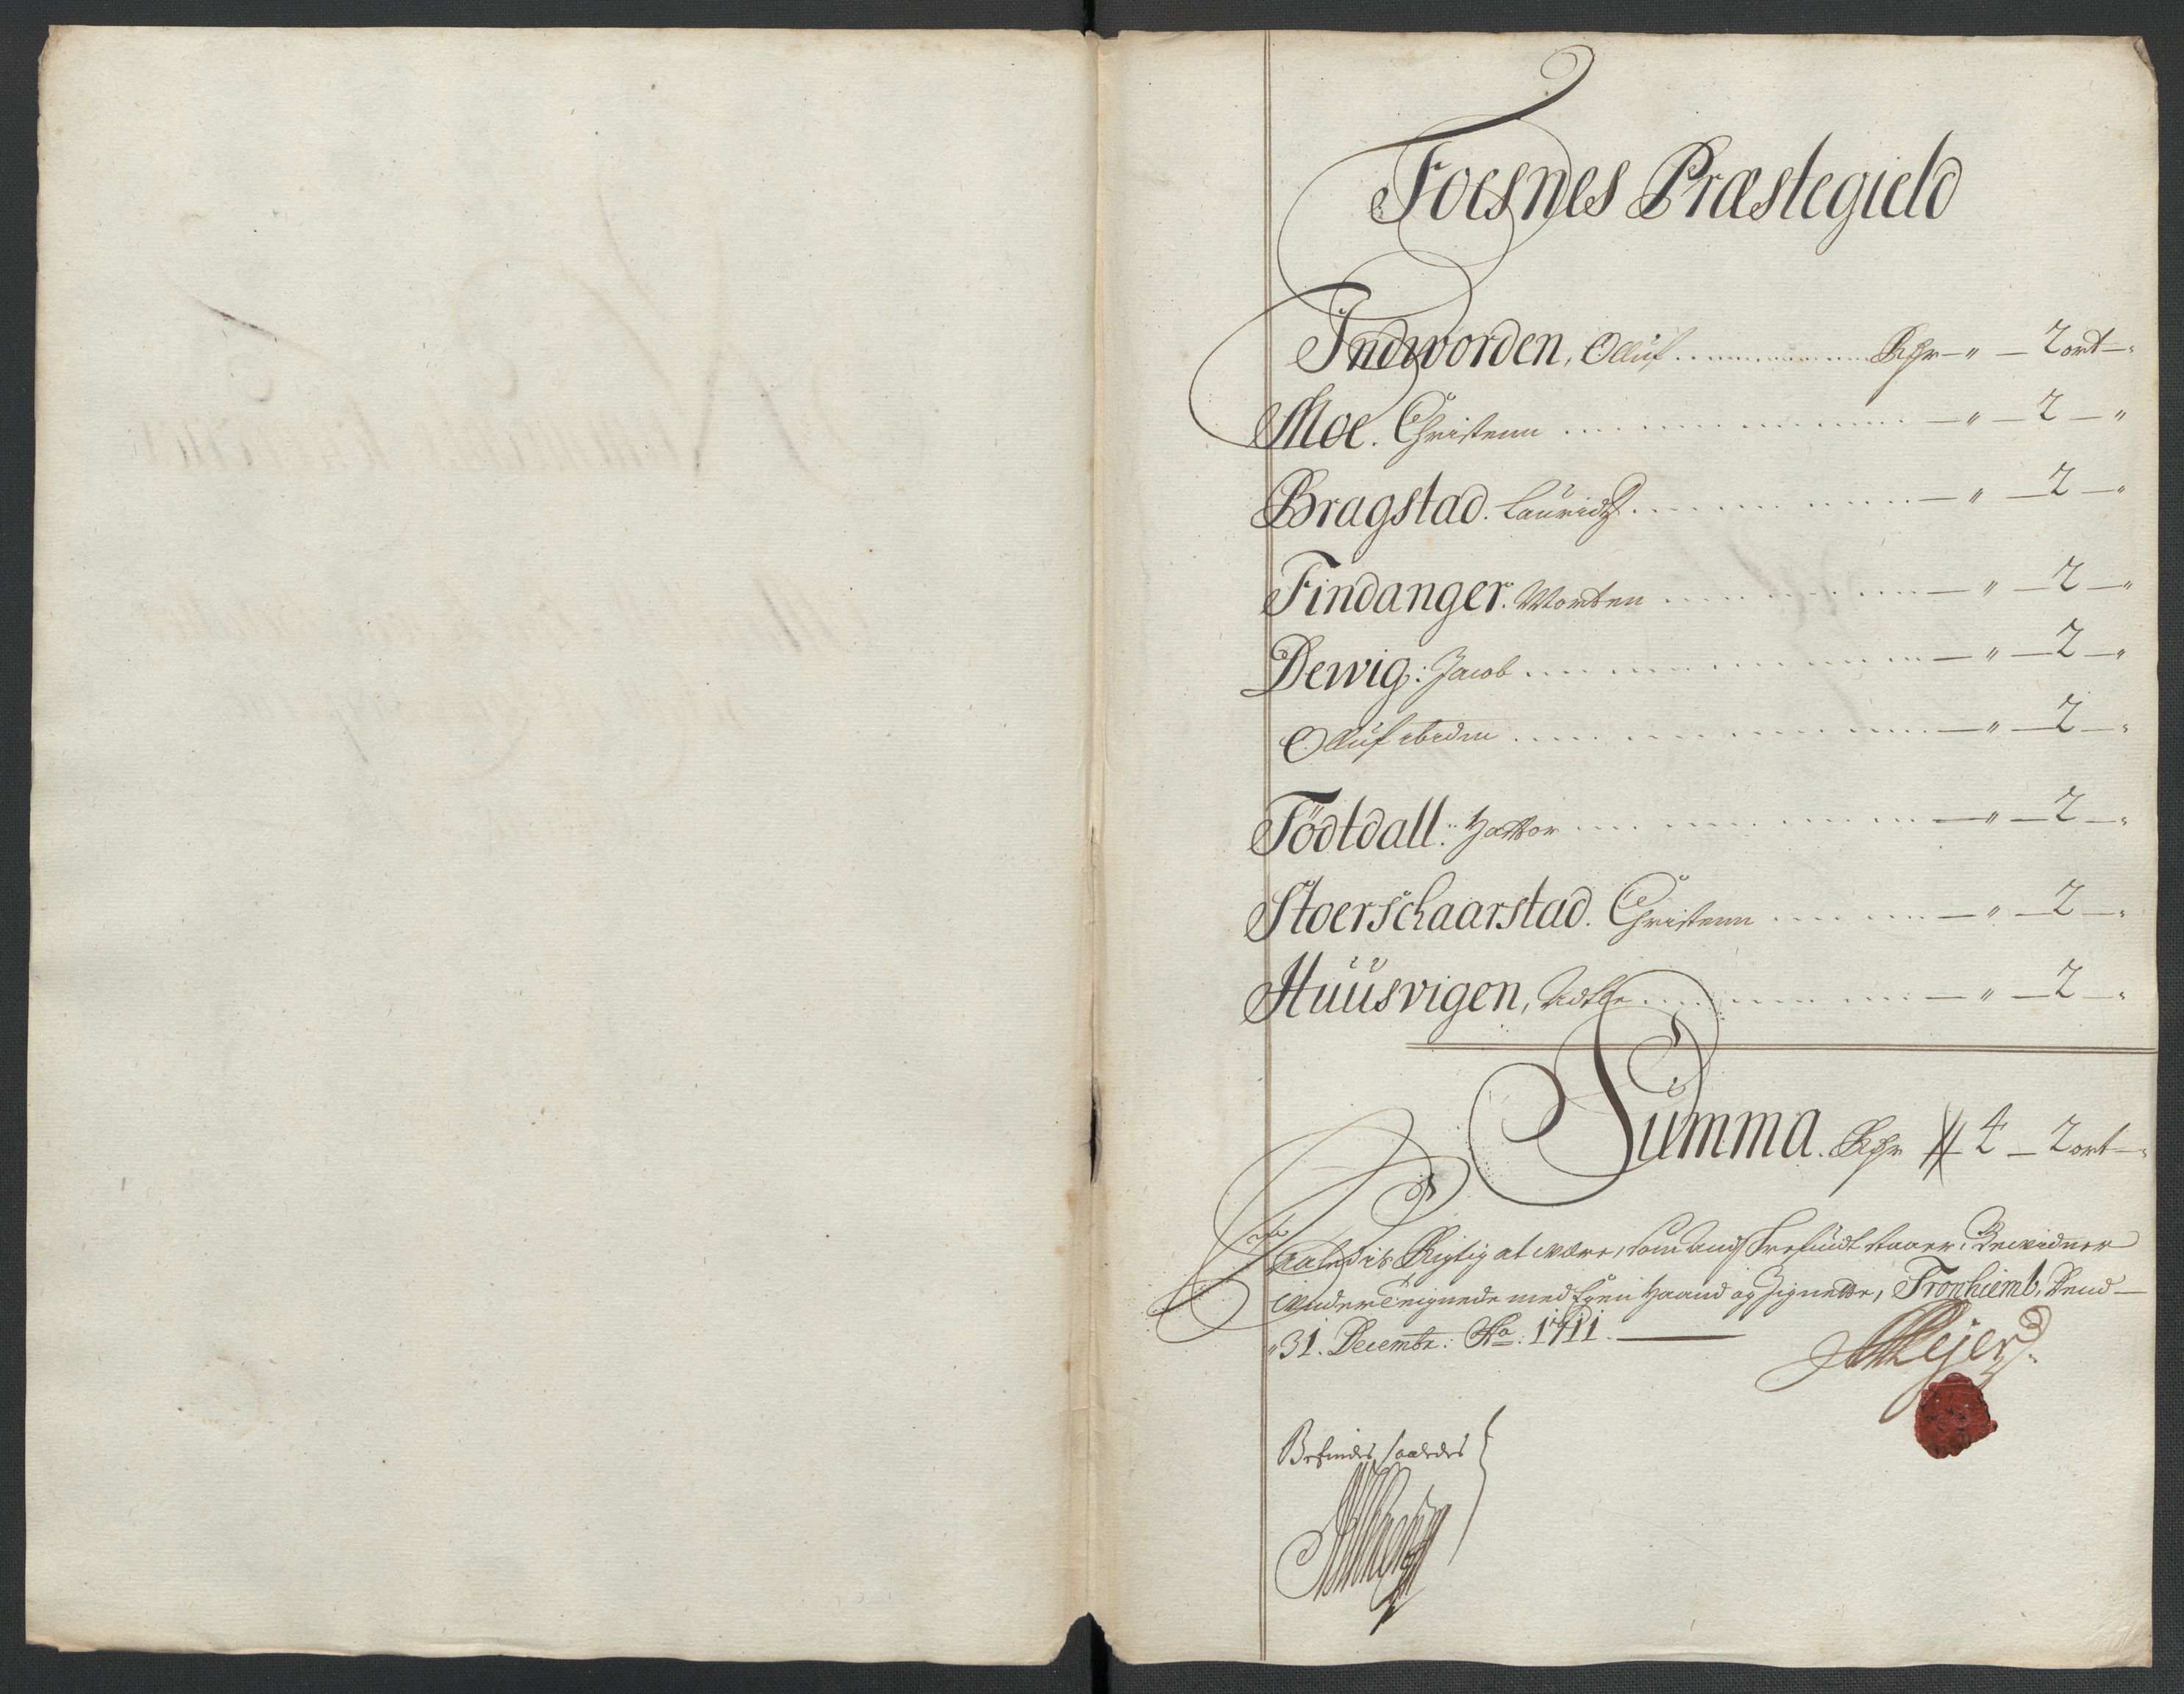 Foesnes Præstegield
Indworden, Olluf ........ Rdr - " - 2 ort - "
Moe. Christenn ........ - " - 2 - "
Bragstad. Lauridtz ........ - " - 2 - "
Findanger. Morten ........ - " - 2 - "
Dewig: Jacob ........ - " - 2 - "
Olluf ibidem ........ - " - 2 - "
Födtdall: ........ - " - 2 - "
Stoerschaarstad. Christenn ........ - " - 2 - "
Huusvigen, ........ - " - 2 - "
Summa. Rdr 4 - 2 ort - "
Saaledis Rigtig at være, som staaer, Bevidner
under Teignede med Egen Haand og Zignette, Tronhiemb, Dend
31. Decembr: Ao: 1711.
Meyer
Befindes saaledes